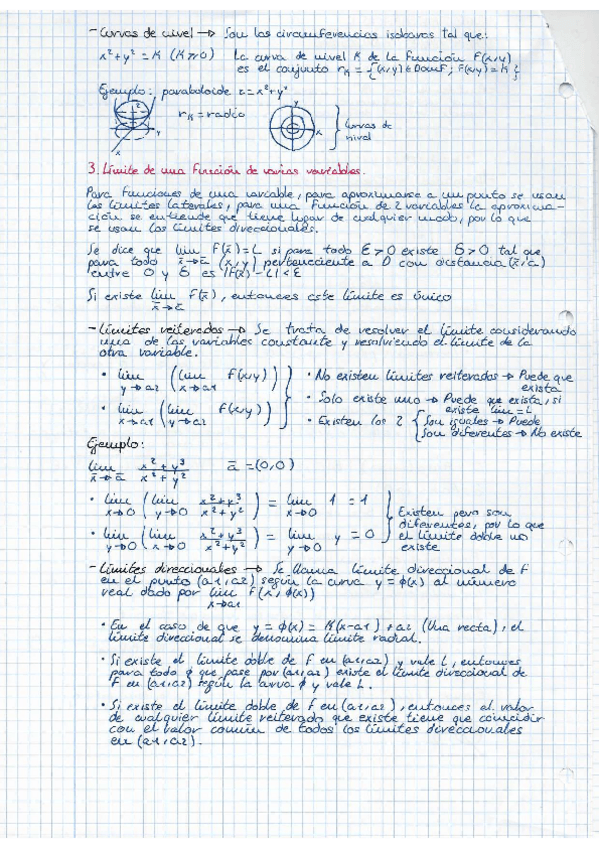 - Curvas de nivel → Son las circunferencias isobaras tal que:
x² + y² = K (K≥0) La curva de nivel K de la función F(x,y)
es el conjunto r_K = {(x,y) ∈ Dom F ; F(x,y) = K}
Ejemplo: paraboloide z = x² + y²
r_K = radio
Curvas de
nivel
3. Límite de una función de varias variables.
Para funciones de una variable, para aproximarse a un punto se usan
los límites laterales, para una función de 2 variables la aproxima-
ción se entiende que tiene lugar de cualquier modo, por lo que
se usan los límites direccionales.
Se dice que lim F(x̄) = L si para todo ε > 0 existe δ > 0 tal que
x̄→ā
para todo (x,y) perteneciente a D con distancia (x̄,ā)
entre 0 y δ es |F(x̄) - L| < ε
Si existe lim F(x̄), entonces este límite es único
x̄→ā
- Límites reiterados → Se trata de resolver el límite considerando
una de las variables constante y resolviendo el límite de la
otra variable.
• lim (lim F(x,y))
y→a2 x→a1
• lim (lim F(x,y))
x→a1 y→a2
• No existen límites reiterados → Puede que
exista
• Solo existe uno → Puede que exista, si
existe lim = L
• Existen los 2 { Son iguales → Puede
Son diferentes → No existe
Ejemplo:
lim x² + y³ / x² + y² ā = (0,0)
x̄→ā
• lim (lim x² + y³ / x² + y²) = lim 1 = 1
x→0 y→0 x→0
• lim (lim x² + y³ / x² + y²) = lim y = 0
y→0 x→0 y→0
Existen pero son
diferentes, por lo que
el límite doble no
existe
- Límites direccionales → Se llama límite direccional de F
en el punto (a1,a2) según la curva y = φ(x) al número
real dado por lim F(x, φ(x))
x→a1
• En el caso de que y = φ(x) = K(x-a1) + a2 (Una recta), el
límite direccional se denomina límite radial.
• Si existe el límite doble de F en (a1,a2) y vale L, entonces
para todo φ que pase por (a1,a2) existe el límite direccional de
F en (a1,a2) según la curva φ y vale L.
• Si existe el límite doble de F en (a1,a2), entonces el valor
de cualquier límite reiterado que existe tiene que coincidir
con el valor común de todos los límites direccionales
en (a1,a2).